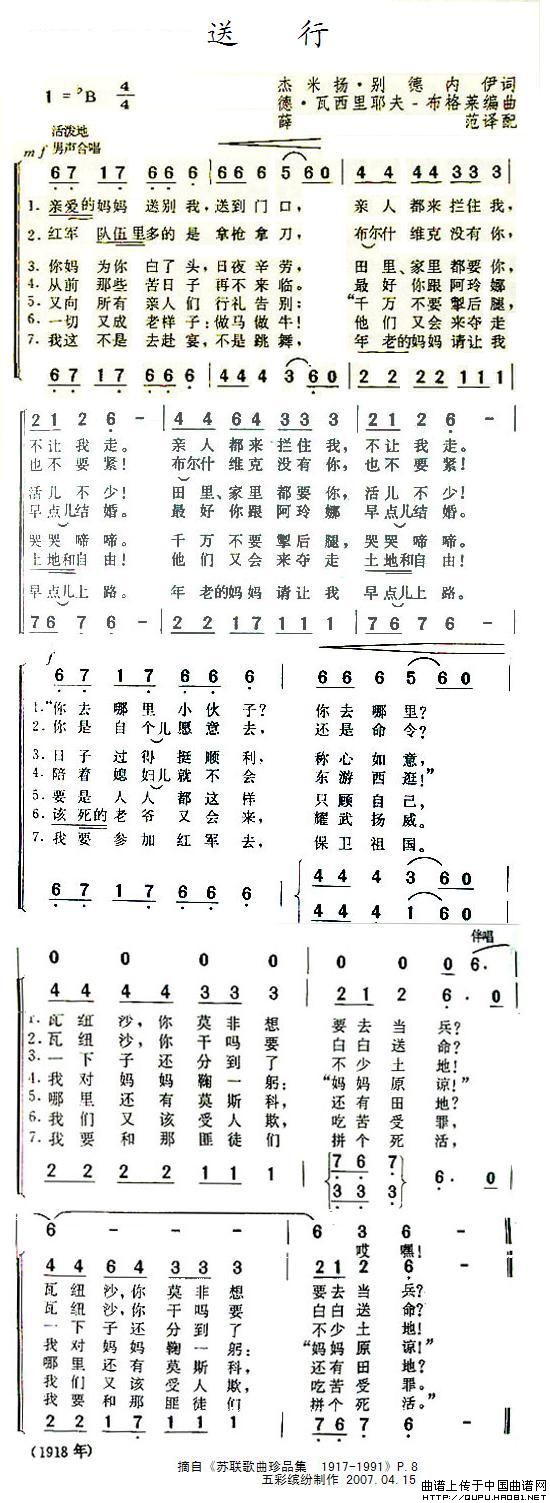 送 行
1 = ♭B 4/4
杰米扬·别德内伊词
德·瓦西里耶夫-布格莱编曲
薛 范译配
活泼地
mf 男声合唱
6 7 1 7 6 6 6 6 6 6 5 6 0 4 4 4 4 3 3 3
1. 亲爱的妈妈 送别我,送到门口, 亲人都来拦住我,
2. 红军 队伍里多的是 拿枪拿刀, 布尔什维克没有你,
3. 你妈为你 白了头,日夜辛劳, 田里、家里都要你,
4. 从前那些 苦日子 再不来临。 最好你跟阿玲娜
5. 又向所有 亲人们 行礼告别: “千万不要掣后腿,
6. 一切又成 老样子:做马做牛! 他们又会来夺走
7. 我这不是 去赴宴,不是跳舞, 年老的妈妈请让我
6 7 1 7 6 6 6 4 4 4 3 6 0 2 2 2 2 1 1 1
2 1 2 6 - 4 4 6 4 3 3 3 2 1 2 6 -
不让我走。 亲人都来拦住我, 不让我走。
也不要紧! 布尔什维克没有你, 也不要紧!
活儿不少! 田里、家里都要你, 活儿不少!
早点儿结婚。 最好你跟阿玲娜 早点儿结婚。
哭哭啼啼。 千万不要掣后腿, 哭哭啼啼。
土地和自由! 他们又会来夺走 土地和自由!
早点儿上路。 年老的妈妈请让我 早点儿上路。
7 6 7 6 - 2 2 1 7 1 1 1 7 6 7 6 -
f
6 7 1 7 6 6 6 6 6 6 5 6 0
1. “你去哪里小伙子? 你去哪里?
2. 你是自个儿愿意去, 还是命令?
3. 日子过得挺顺利, 称心如意,
4. 陪着媳妇儿就不会 东游西逛!”
5. 要是人人都这样 只顾自己,
6. 该死的老爷又会来, 耀武扬威。
7. 我要参加红军去, 保卫祖国。
6 7 1 7 6 6 6 4 4 4 3 6 0
4 4 4 1 6 0
伴唱
0 0 0 0 0 0 0 6.
4 4 4 4 3 3 3 2 1 2 6. 0
1. 瓦纽沙,你莫非想 要去当兵?
2. 瓦纽沙,你干吗要 白白送命?
3. 一下子还分到了 不少土地!
4. 我对妈妈鞠一躬: “妈妈原谅!”
5. 哪里还有莫斯科, 还有田地?
6. 我们又该受人欺, 吃苦受罪,
7. 我要和那匪徒们 拼个死活,
2 2 2 2 1 1 1 7 6 7 6. 0
3 3 3
6 - - - 6 3 6
哎 嘿!
4 4 6 4 3 3 3 2 1 2 6
瓦纽沙,你莫非想 要去当兵?
瓦纽沙,你干吗要 白白送命?
一下子还分到了 不少土地!
我对妈妈鞠一躬: “妈妈原谅!”
哪里还有莫斯科, 还有田地?
我们又该受人欺, 吃苦受罪。
我要和那匪徒们 拼个死活。”
2 2 1 7 1 1 1 7 6 7 6
(1918 年)
摘自《苏联歌曲珍品集 1917-1991》P.8
五彩缤纷制作 2007.04.15
曲谱上传于中国曲谱网
HTTP://QUPU.HAO81.NET